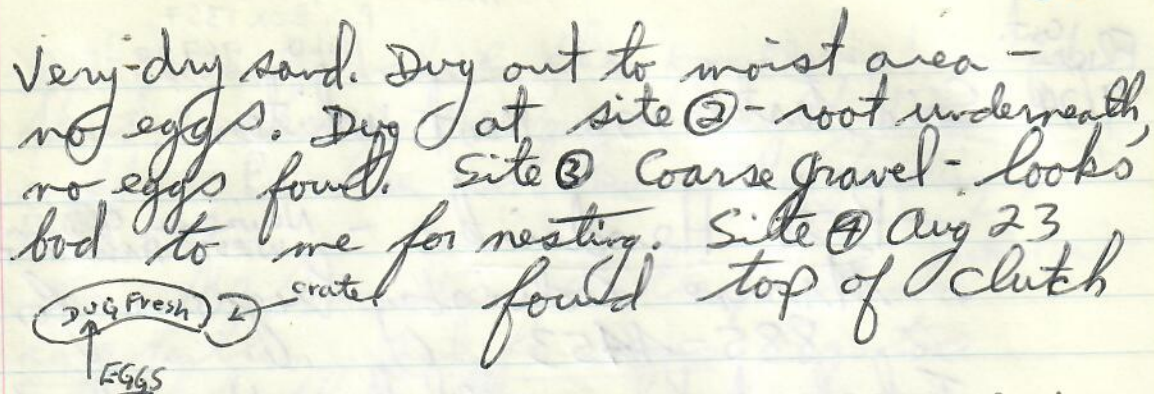 Very-dry sand. Dug out to moist area -
no eggs. Dug at site ② - root underneath,
no eggs found. Site ③ Coarse gravel - looks
bad to me for nesting. Site ④ Aug 23
found top of clutch
crater
DUG Fresh
EGGS